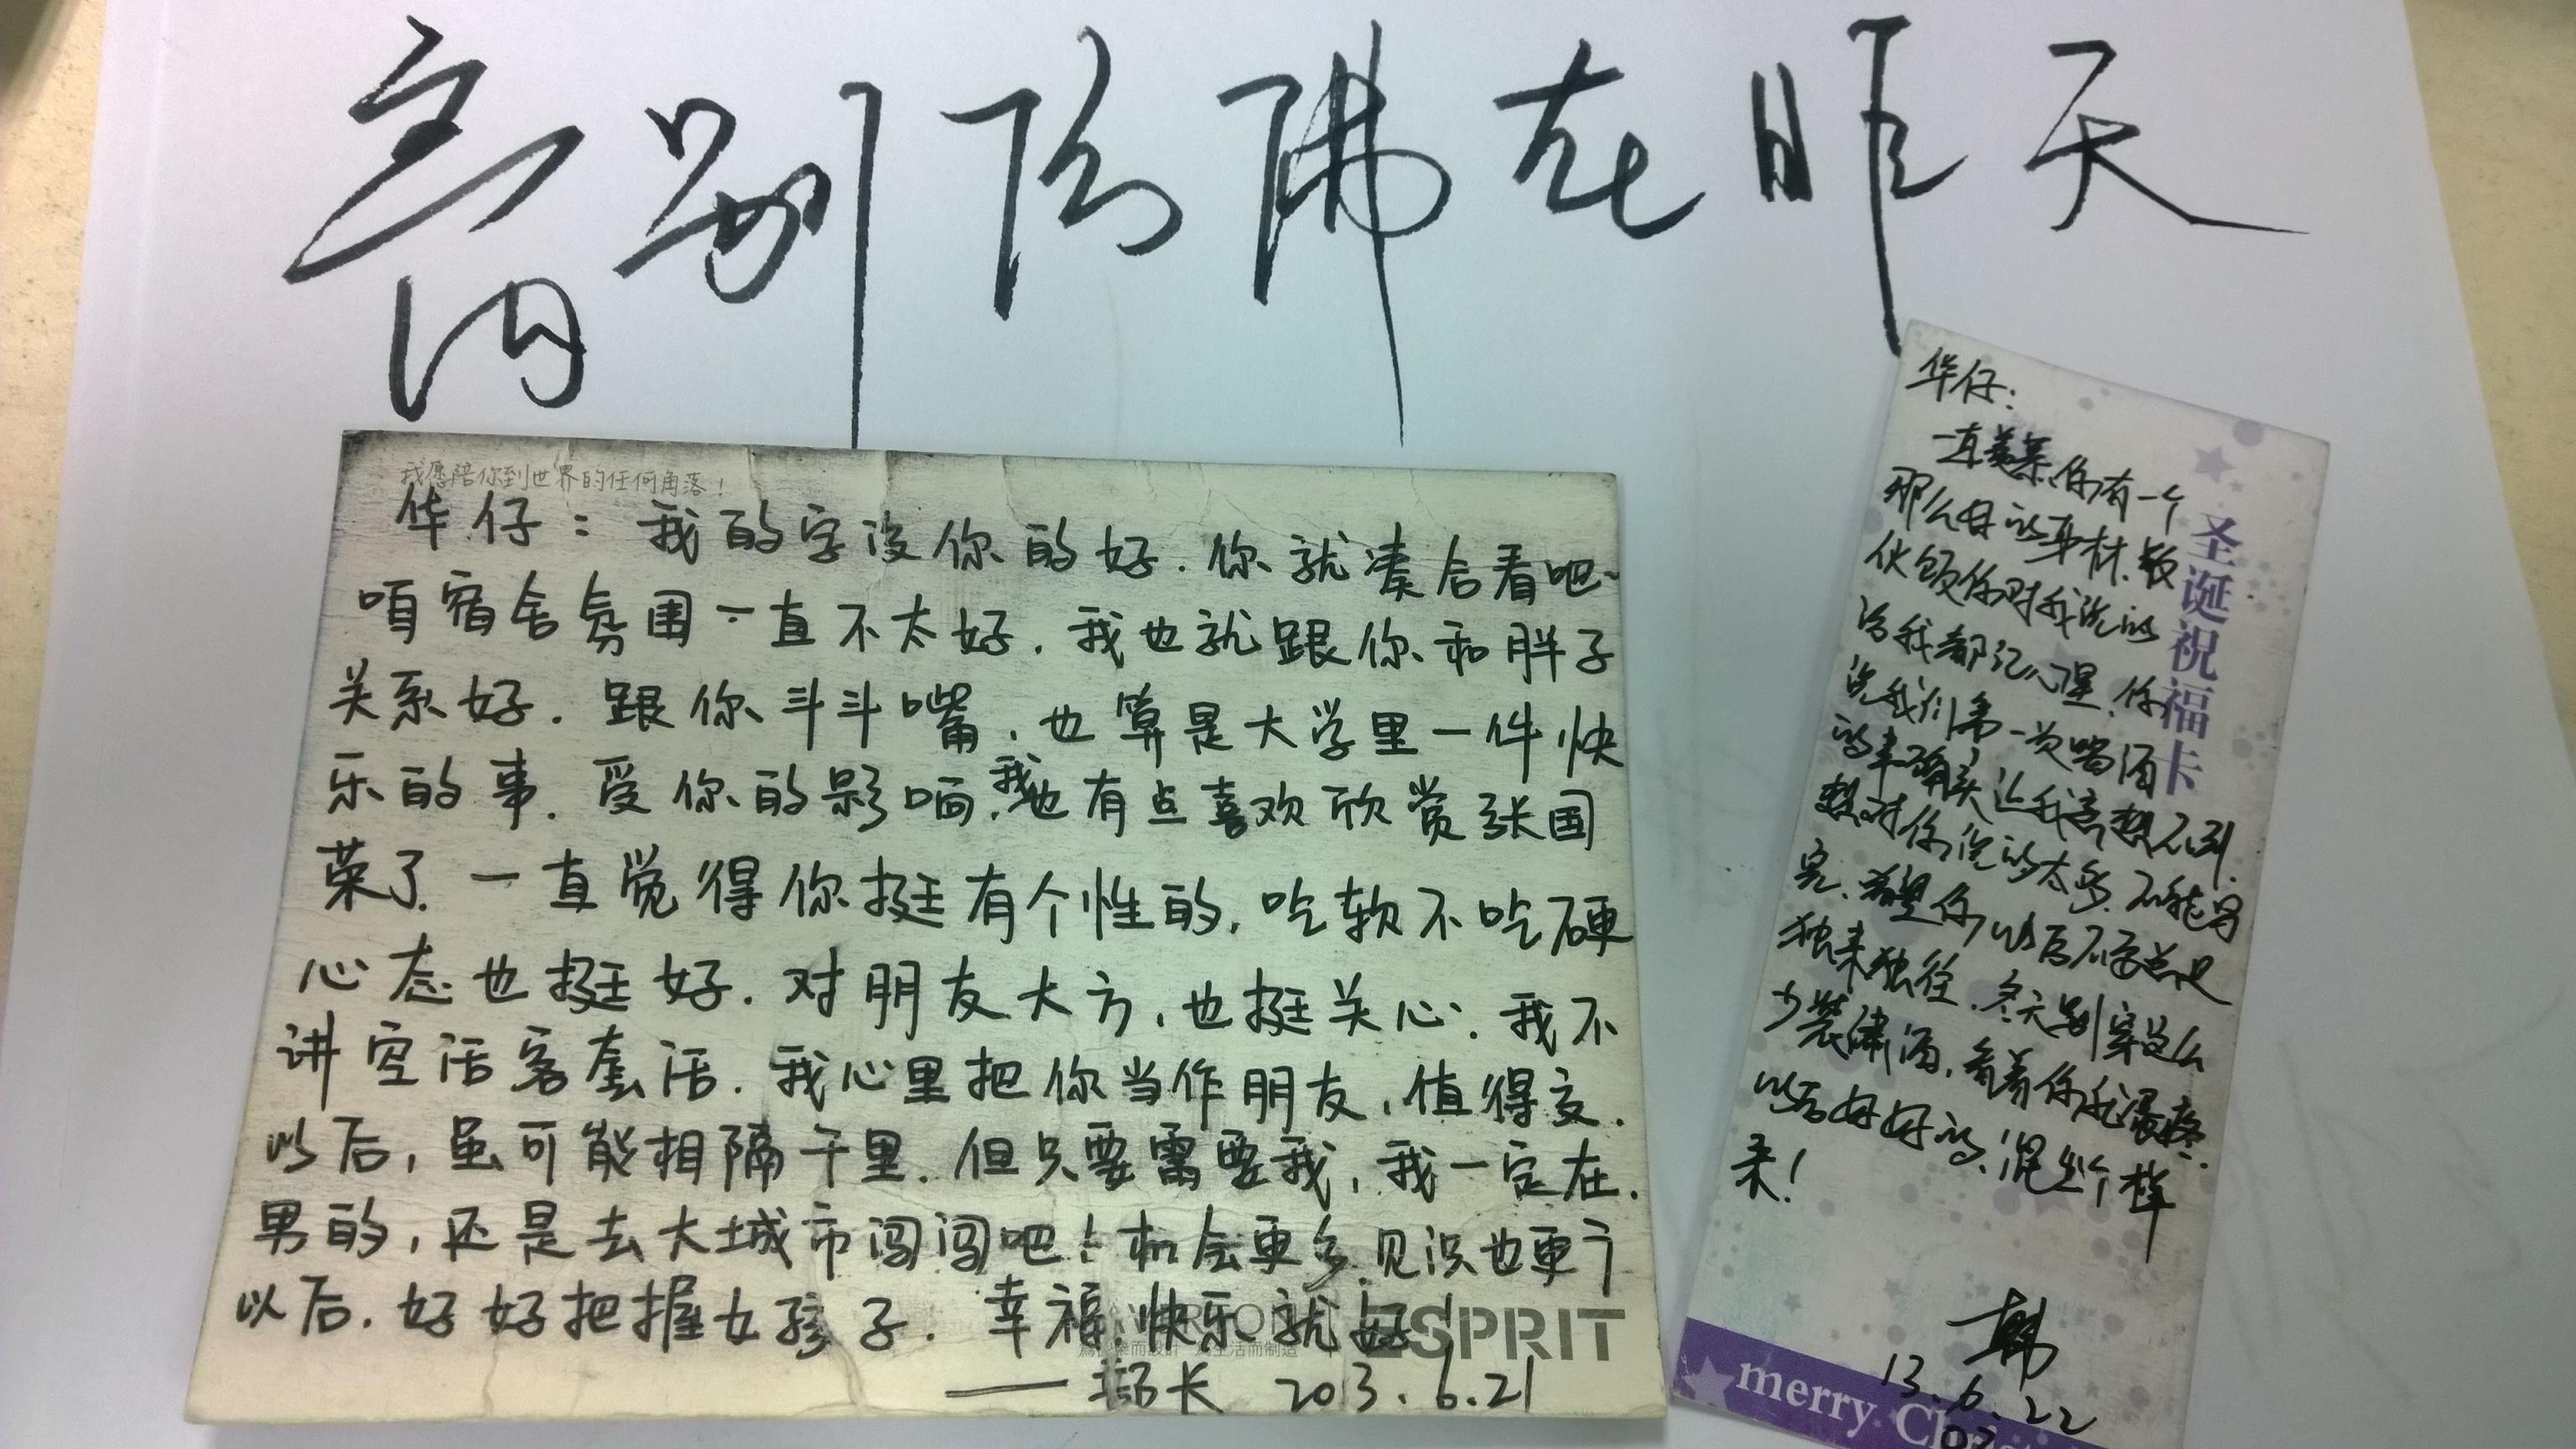 离别仿佛在昨天
我愿陪你到世界的任何角落！
华仔：我的字没你的好.你就凑合看吧.
咱宿舍氛围一直不太好.我也就跟你和胖子
关系好.跟你斗斗嘴,也算是大学里一件快
乐的事.受你的影响,我也有点喜欢欣赏张国
荣了.一直觉得你挺有个性的,吃软不吃硬
心态也挺好.对朋友大方,也挺关心.我不
讲空话客套话.我心里把你当作朋友,值得交.
以后,虽可能相隔千里.但只要需要我,我一定在.
男的,还是去大城市闯闯吧!机会更多.见识也更广
以后.好好把握女孩子.幸福.快乐就好!
ESPRIT
——部长 2013.6.21
华仔:
一直羡慕你有一个
那么好的身材.散
伙饭你对我说的
话我都记心里.你
说我们第一次喝酒
的事确实让我意想不到.
想对你说的太多.不能写
完.希望你以后不要总是
独来独往.冬天别穿这么
少装潇洒,看着你我蛋疼.
以后好好的,混出个样
来!
韩
13.6.22
圣诞祝福卡
merry